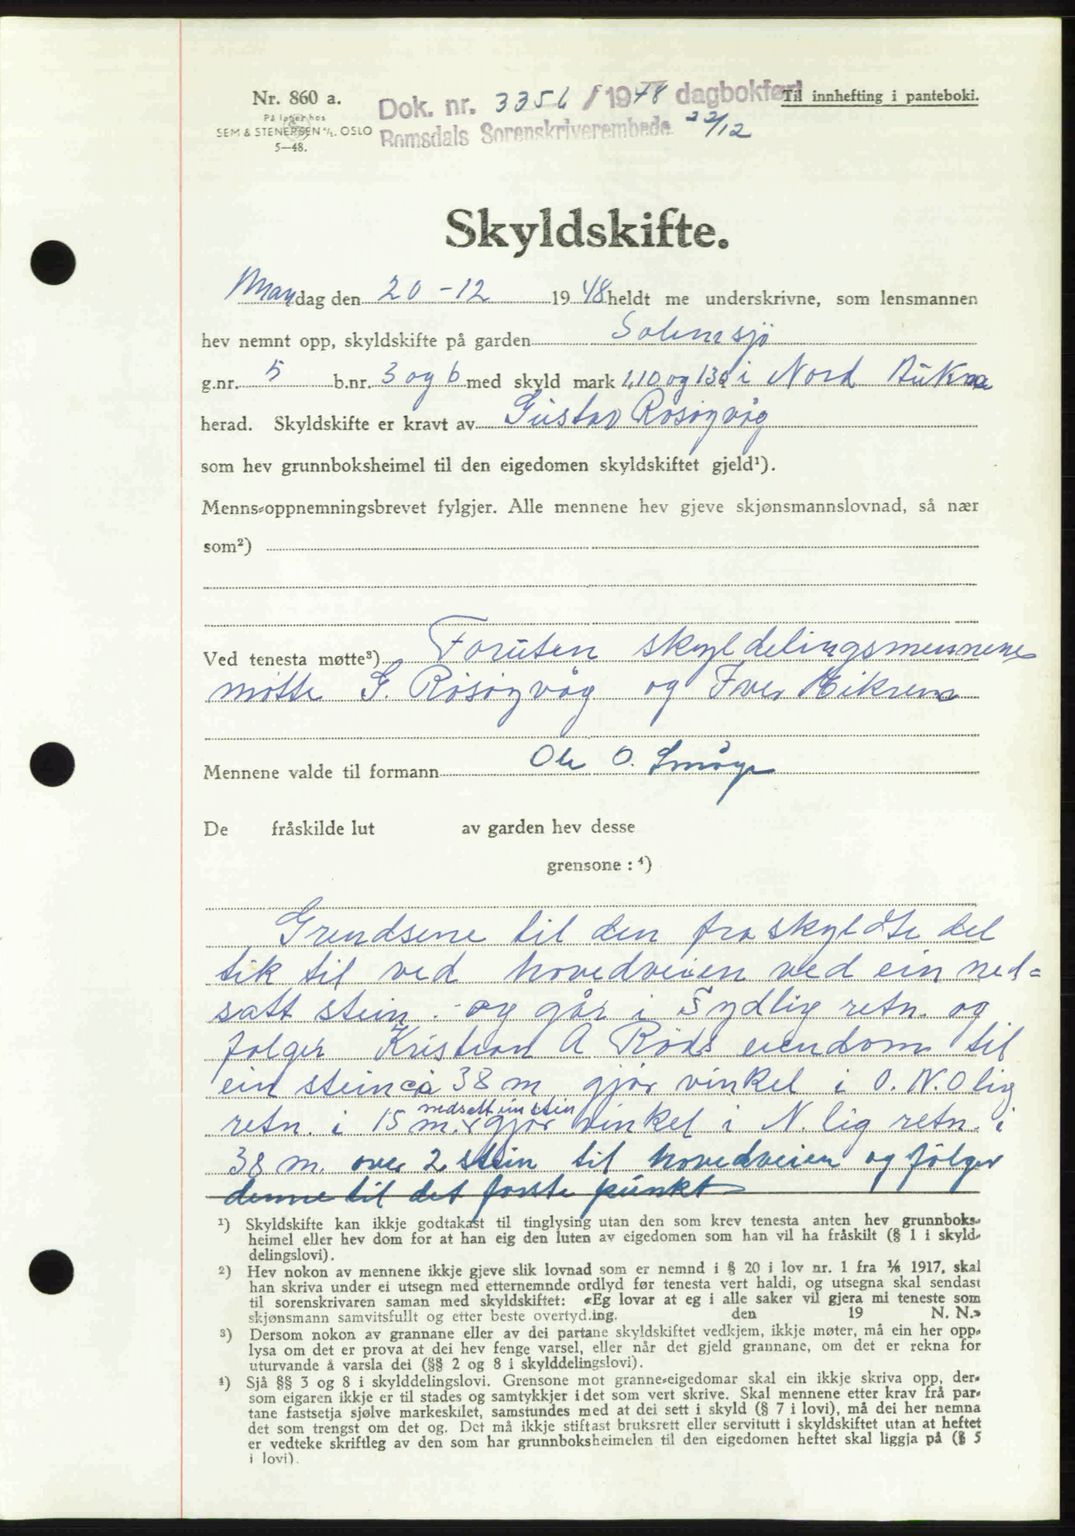 Nr. 860 a.
På lager hos
SEM & STENERSEN A/S. OSLO
5—48.
Dok. nr. 3356 / 1948 dagbokført
Romsdals Sorenskriverembede 22/12
Til innhefting i panteboki.
Skyldskifte.
Mandag den 20-12 1948 heldt me underskrivne, som lensmannen
hev nemnt opp, skyldskifte på garden Solemsjø
g.nr. 5 b.nr. 3 og 6 med skyld mark 1,10 og 1,30 i Nord Aukra
herad. Skyldskifte er kravt av Gustav Røsøgvåg
som hev grunnboksheimel til den eigedomen skyldskiftet gjeld¹).
Menns-oppnemningsbrevet fylgjer. Alle mennene hev gjeve skjønsmannslovnad, så nær
som²)
Ved tenesta møtte³) Foruten skyldelingsmennene
møtte G. Røsøgvåg og Iver Eikrem
Mennene valde til formann Ole O. Småge
De fråskilde lut av garden hev desse
grensone : ⁴)
Grendsene til den fraskyldte del
tik til ved hovedveien ved ein ned=
satt stein. og går i Sydlig retn. og
følger Kristian A Røds eiendom til
ein stein ca 38 m gjør vinkel i O. N. O lig
nedsatt ein stein
retn. i 15 m. gjør vinkel i N. lig retn. i
38 m. over 2 stein til hovedveien og følger
denne til det første punkt
¹) Skyldskifte kan ikkje godtakast til tinglysing utan den som krev tenesta anten hev grunnboks-
heimel eller hev dom for at han eig den luten av eigedomen som han vil ha fråskilt (§ 1 i skyld-
delingslovi).
²) Hev nokon av mennene ikkje gjeve slik lovnad som er nemnd i § 20 i lov nr. 1 fra ⅙ 1917, skal
han skriva under ei utsegn med etternemnde ordlyd før tenesta vert haldi, og utsegna skal sendast
til sorenskrivaren saman med skyldskiftet: «Eg lovar at eg i alle saker vil gjera mi teneste som
skjønsmann samvitsfullt og etter beste overtyding. den 19 N. N.»
³) Dersom nokon av grannane eller av dei partane skyldskiftet vedkjem, ikkje møter, må ein her opp-
lysa om det er prova at dei hev fenge varsel, eller når det gjeld grannane, om det er rekna for
uturvande å varsla dei (§§ 2 og 8 i skylddelingslovi).
⁴) Sjå §§ 3 og 8 i skylddelingslovi. Grensone mot granne-eigedomar skal ein ikkje skriva opp, der-
som eigaren ikkje er til stades og samtykkjer i det som vert skrive. Skal mennene etter krav frå par-
tane fastsetja sjølve markeskilet, samstundes med at dei sett i skyld (§ 7 i lovi), må dei her nemna
det som trengst om det og. Det må ikkje stiftast bruksrett eller servitutt i skyldskiftet utan at heftet
er vedteke skriftleg av den som har grunnboksheimelen til den eigedomen heftet skal liggja på (§ 5
i lovi).